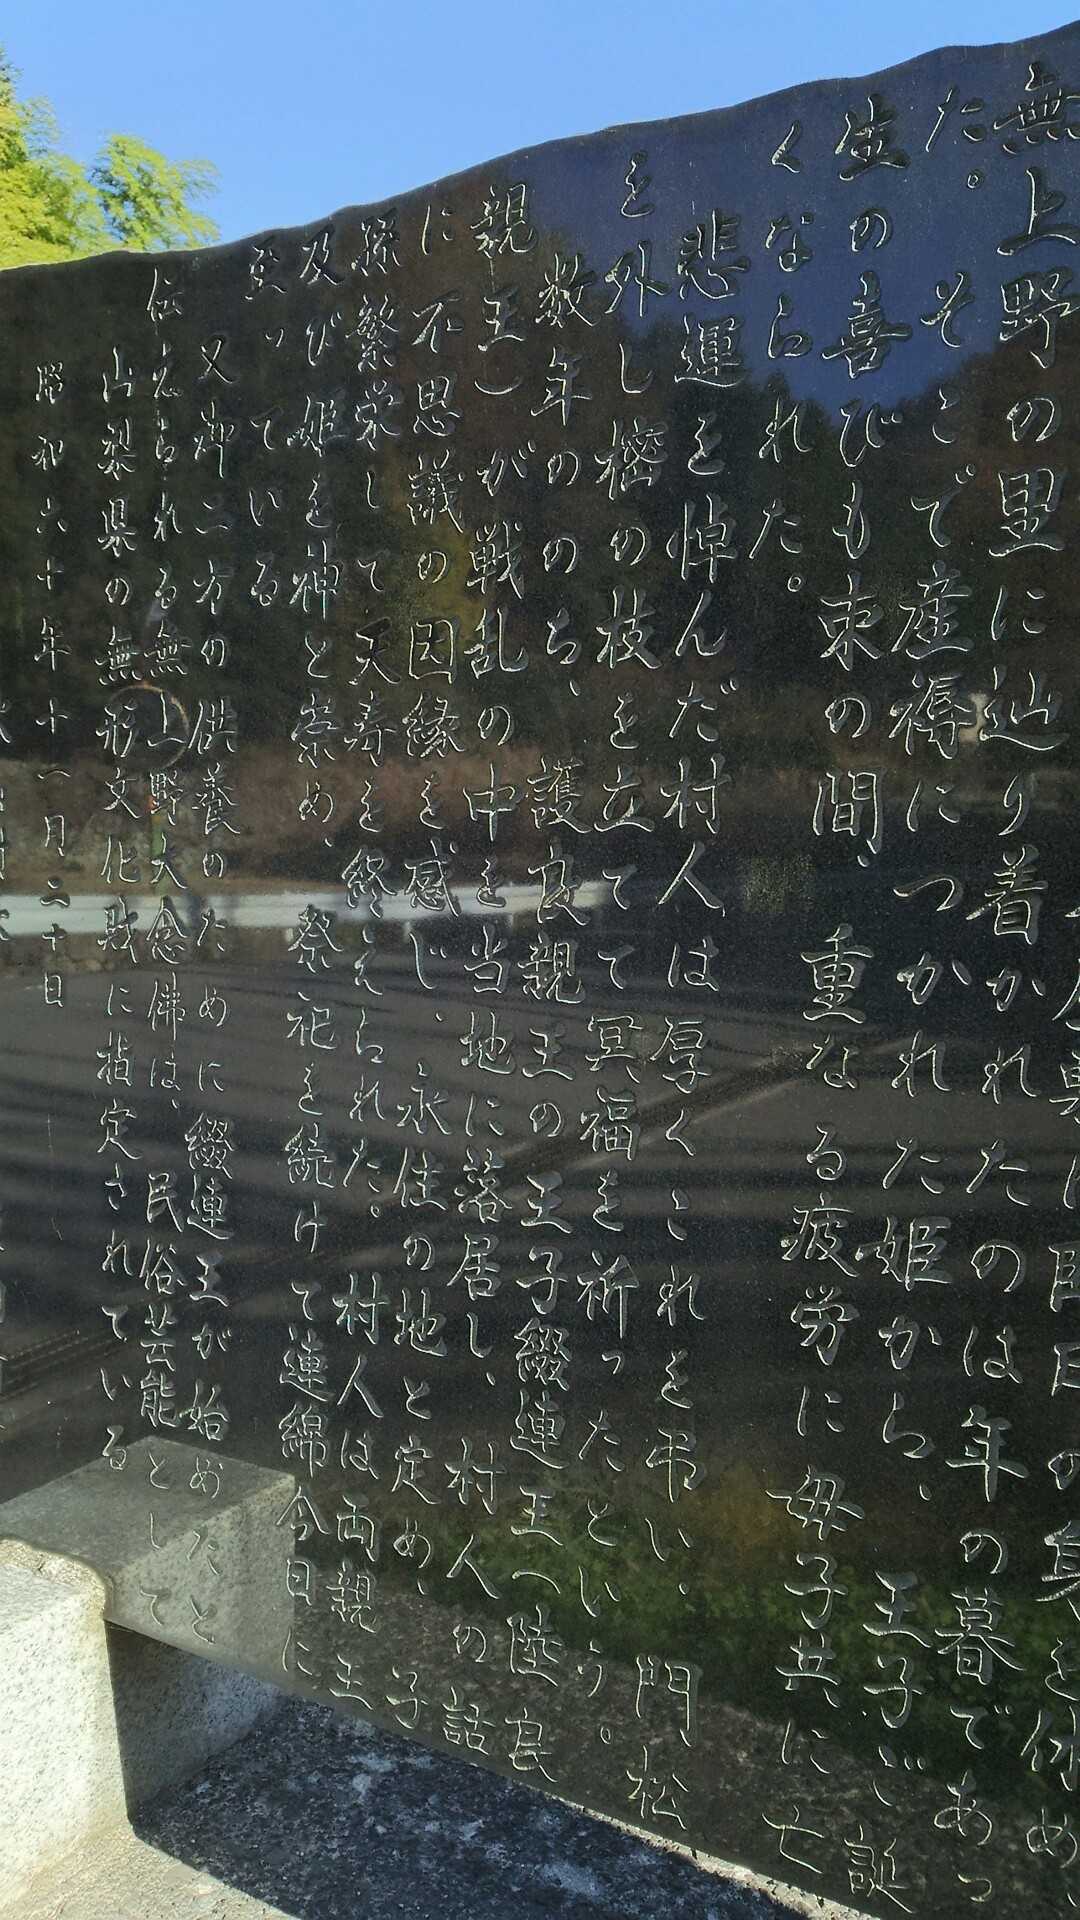 臣下の身を休め、
無上野の里に辿り着かれたのは年の暮であっ
た。そこで産褥につかれた姫から、王子ご誕
生の喜びも束の間、重なる疲労に毎子共に亡
くなられた。
悲運を悼んだ村人は厚くこれを弔い、門松
を外し樒の枝を立てて冥福を祈ったという。
数年ののち、護良親王の王子綴連王(陸良
親王)が戦乱の中を当地に落居し、村人の話
に不思議の因縁を感じ、永住の地と定め、子
孫繁栄して天寿を終えられた。村人は両親王
及び姫を神と崇め、祭祀を続けて連綿今日に
至っている
又御二方の供養のために綴連王が始めたと
伝えられる無上野大念佛は、民俗芸能として
山梨県の無形文化財に指定されている
昭和六十年十一月二十日